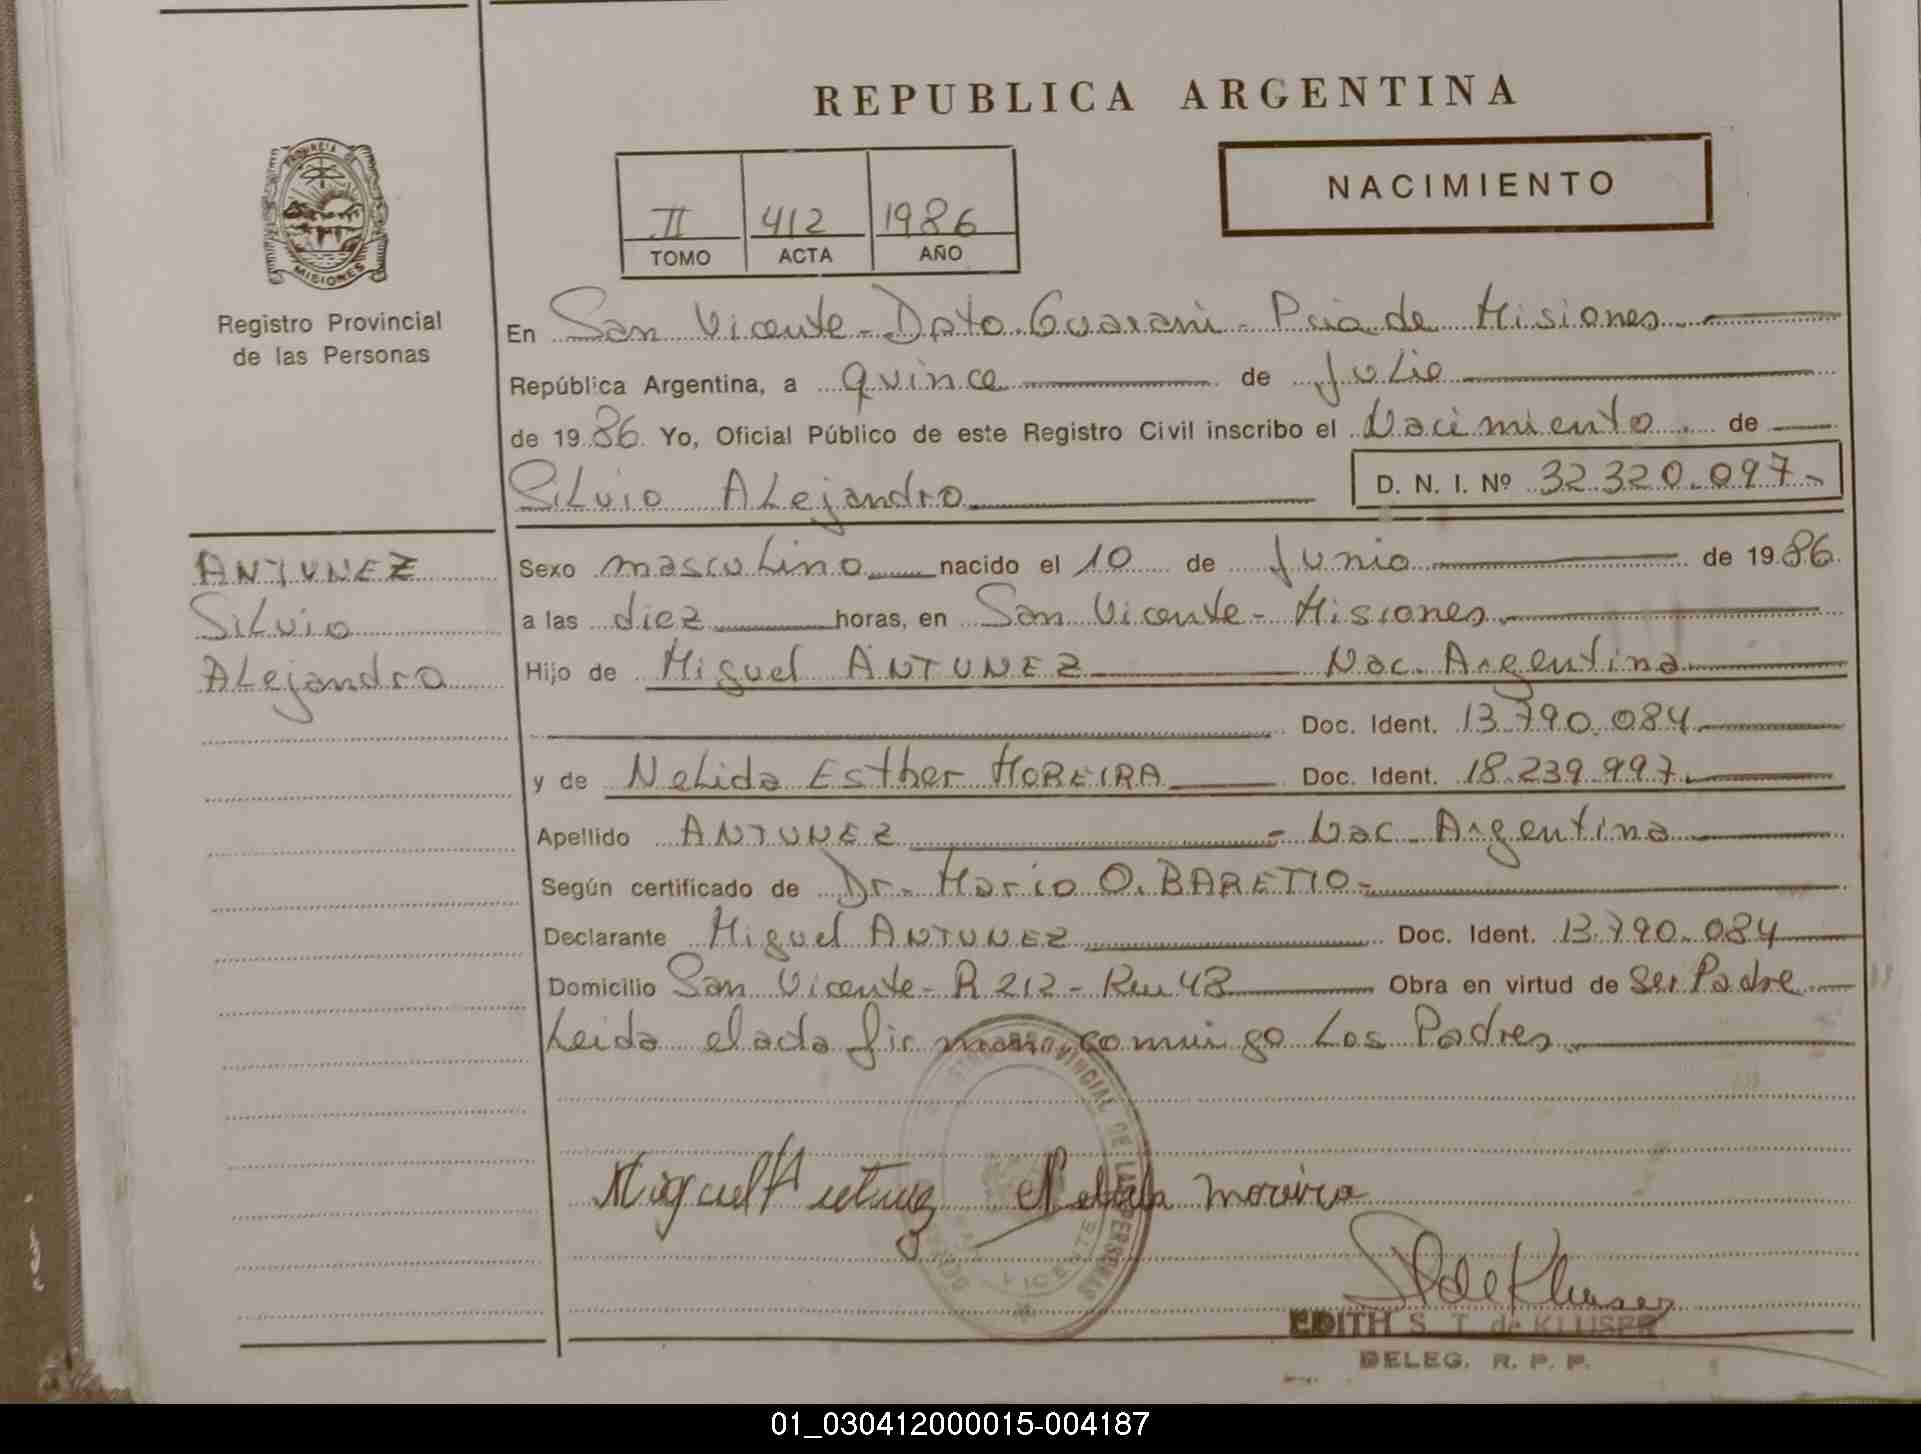 REPUBLICA ARGENTINA
PROVINCIA DE
MISIONES
Registro Provincial
de las Personas
II 412 1986
TOMO ACTA AÑO
NACIMIENTO
En San Vicente - Dpto. Guarani - Pcia de Misiones
República Argentina, a quince de Julio
de 1986 Yo, Oficial Público de este Registro Civil inscribo el Nacimiento de
Silvio Alejandro D. N. I. Nº 32.320.097.-
ANTUNEZ
Silvio
Alejandro
Sexo masculino nacido el 10 de Junio de 1986
a las diez horas, en San Vicente - Misiones
Hijo de Miguel ANTUNEZ Nac. Argentina
Doc. Ident. 13.790.084
y de Nelida Esther MOREIRA Doc. Ident. 18.239.997
Apellido ANTUNEZ - Nac. Argentina
Según certificado de Dr. Mario O. BARETIO-
Declarante Miguel ANTUNEZ Doc. Ident. 13.790.084
Domicilio San Vicente - R 212 - Km 48 Obra en virtud de Ser Padre
Leida el acta firman conmigo Los Padres
PROVINCIAL DE LAS PERSONAS
VICENTE
Miguel Antunez Nelida Moreira
S T de Kluser
EDITH S. T. de KLUSER
DELEG. R. P. P.
01_030412000015-004187